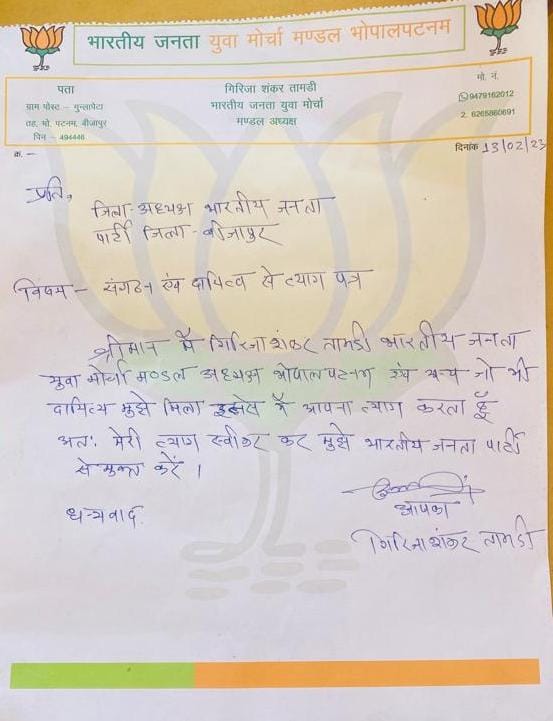 भारतीय जनता युवा मोर्चा मण्डल भोपालपटनम
पता
ग्राम पोस्ट - गुन्लापेटा
तह. भो. पटनम, बीजापुर
पिन - 494446
गिरिजा शंकर तामडी
भारतीय जनता युवा मोर्चा
मण्डल अध्यक्ष
मो. नं.
9479162012
2. 6265860691
क्र. -
दिनांक 13/02/23
प्रति,
जिला-अध्यक्ष भारतीय जनता
पार्टी जिला - बीजापुर
विषय - संगठन एवं दायित्व से त्याग पत्र
श्रीमान मैं गिरिजाशंकर तामडी भारतीय जनता
युवा मोर्चा मण्डल अध्यक्ष भोपालपटनम एवं अन्य जो भी
दायित्य मुझे मिला मैं आपना त्याग करता हूँ
अतः मेरी त्याग स्वीकर कर मुझे भारतीय जनता पार्टी
से मुक्त करें ।
धन्यवाद.
आपका
गिरिजाशंकर तामडी